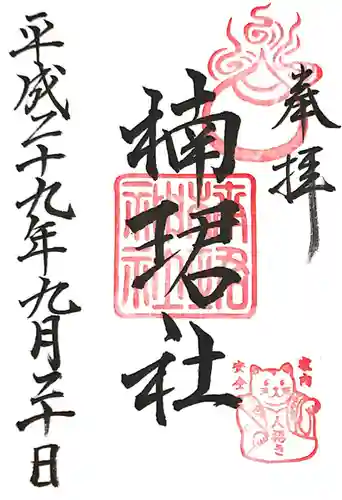 奉拝
楠珺社
平成二十九年九月二十日
家内
安全
人招き